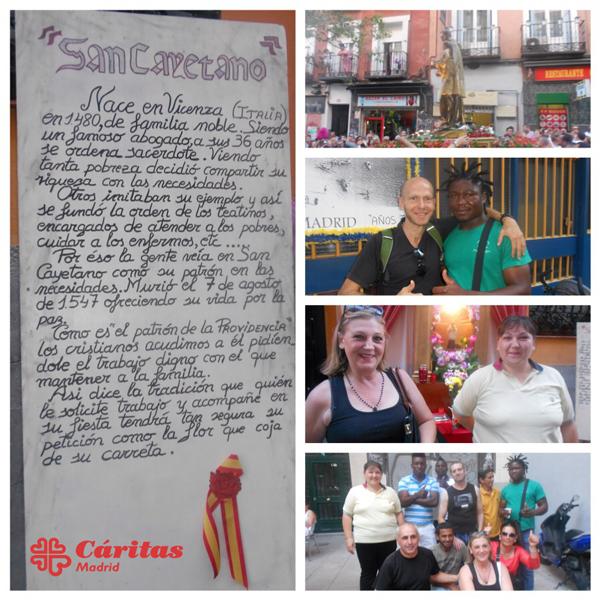 "San Cayetano"
Nace en Vicenza (ITALIA)
en 1480, de familia noble. Siendo
un famoso abogado, a sus 36 años
se ordena sacerdote. Viendo
tanta pobreza decidió compartir su
riqueza con las necesidades.
Otros imitaban su ejemplo y así
se fundó la orden de los teatinos,
encargados de atender a los pobres,
cuidar a los enfermos, etc ....
Por éso la gente veía en San
Cayetano como su patrón en las
necesidades. Murió el 7 de agosto
de 1547 ofreciendo su vida por la
paz.
Cómo es el patrón de la PROVIDENCIA
los cristianos acudimos a él pidien
dole el trabajo digno con el que
mantener a la familia.
Asi dice la tradición que quién
le solicite trabajo y acompañe en
su fiesta tendrá tan segura su
petición como la flor que coja
de su carreta.
Cáritas
Madrid
RESTAURANTE
MADRID
AÑOS